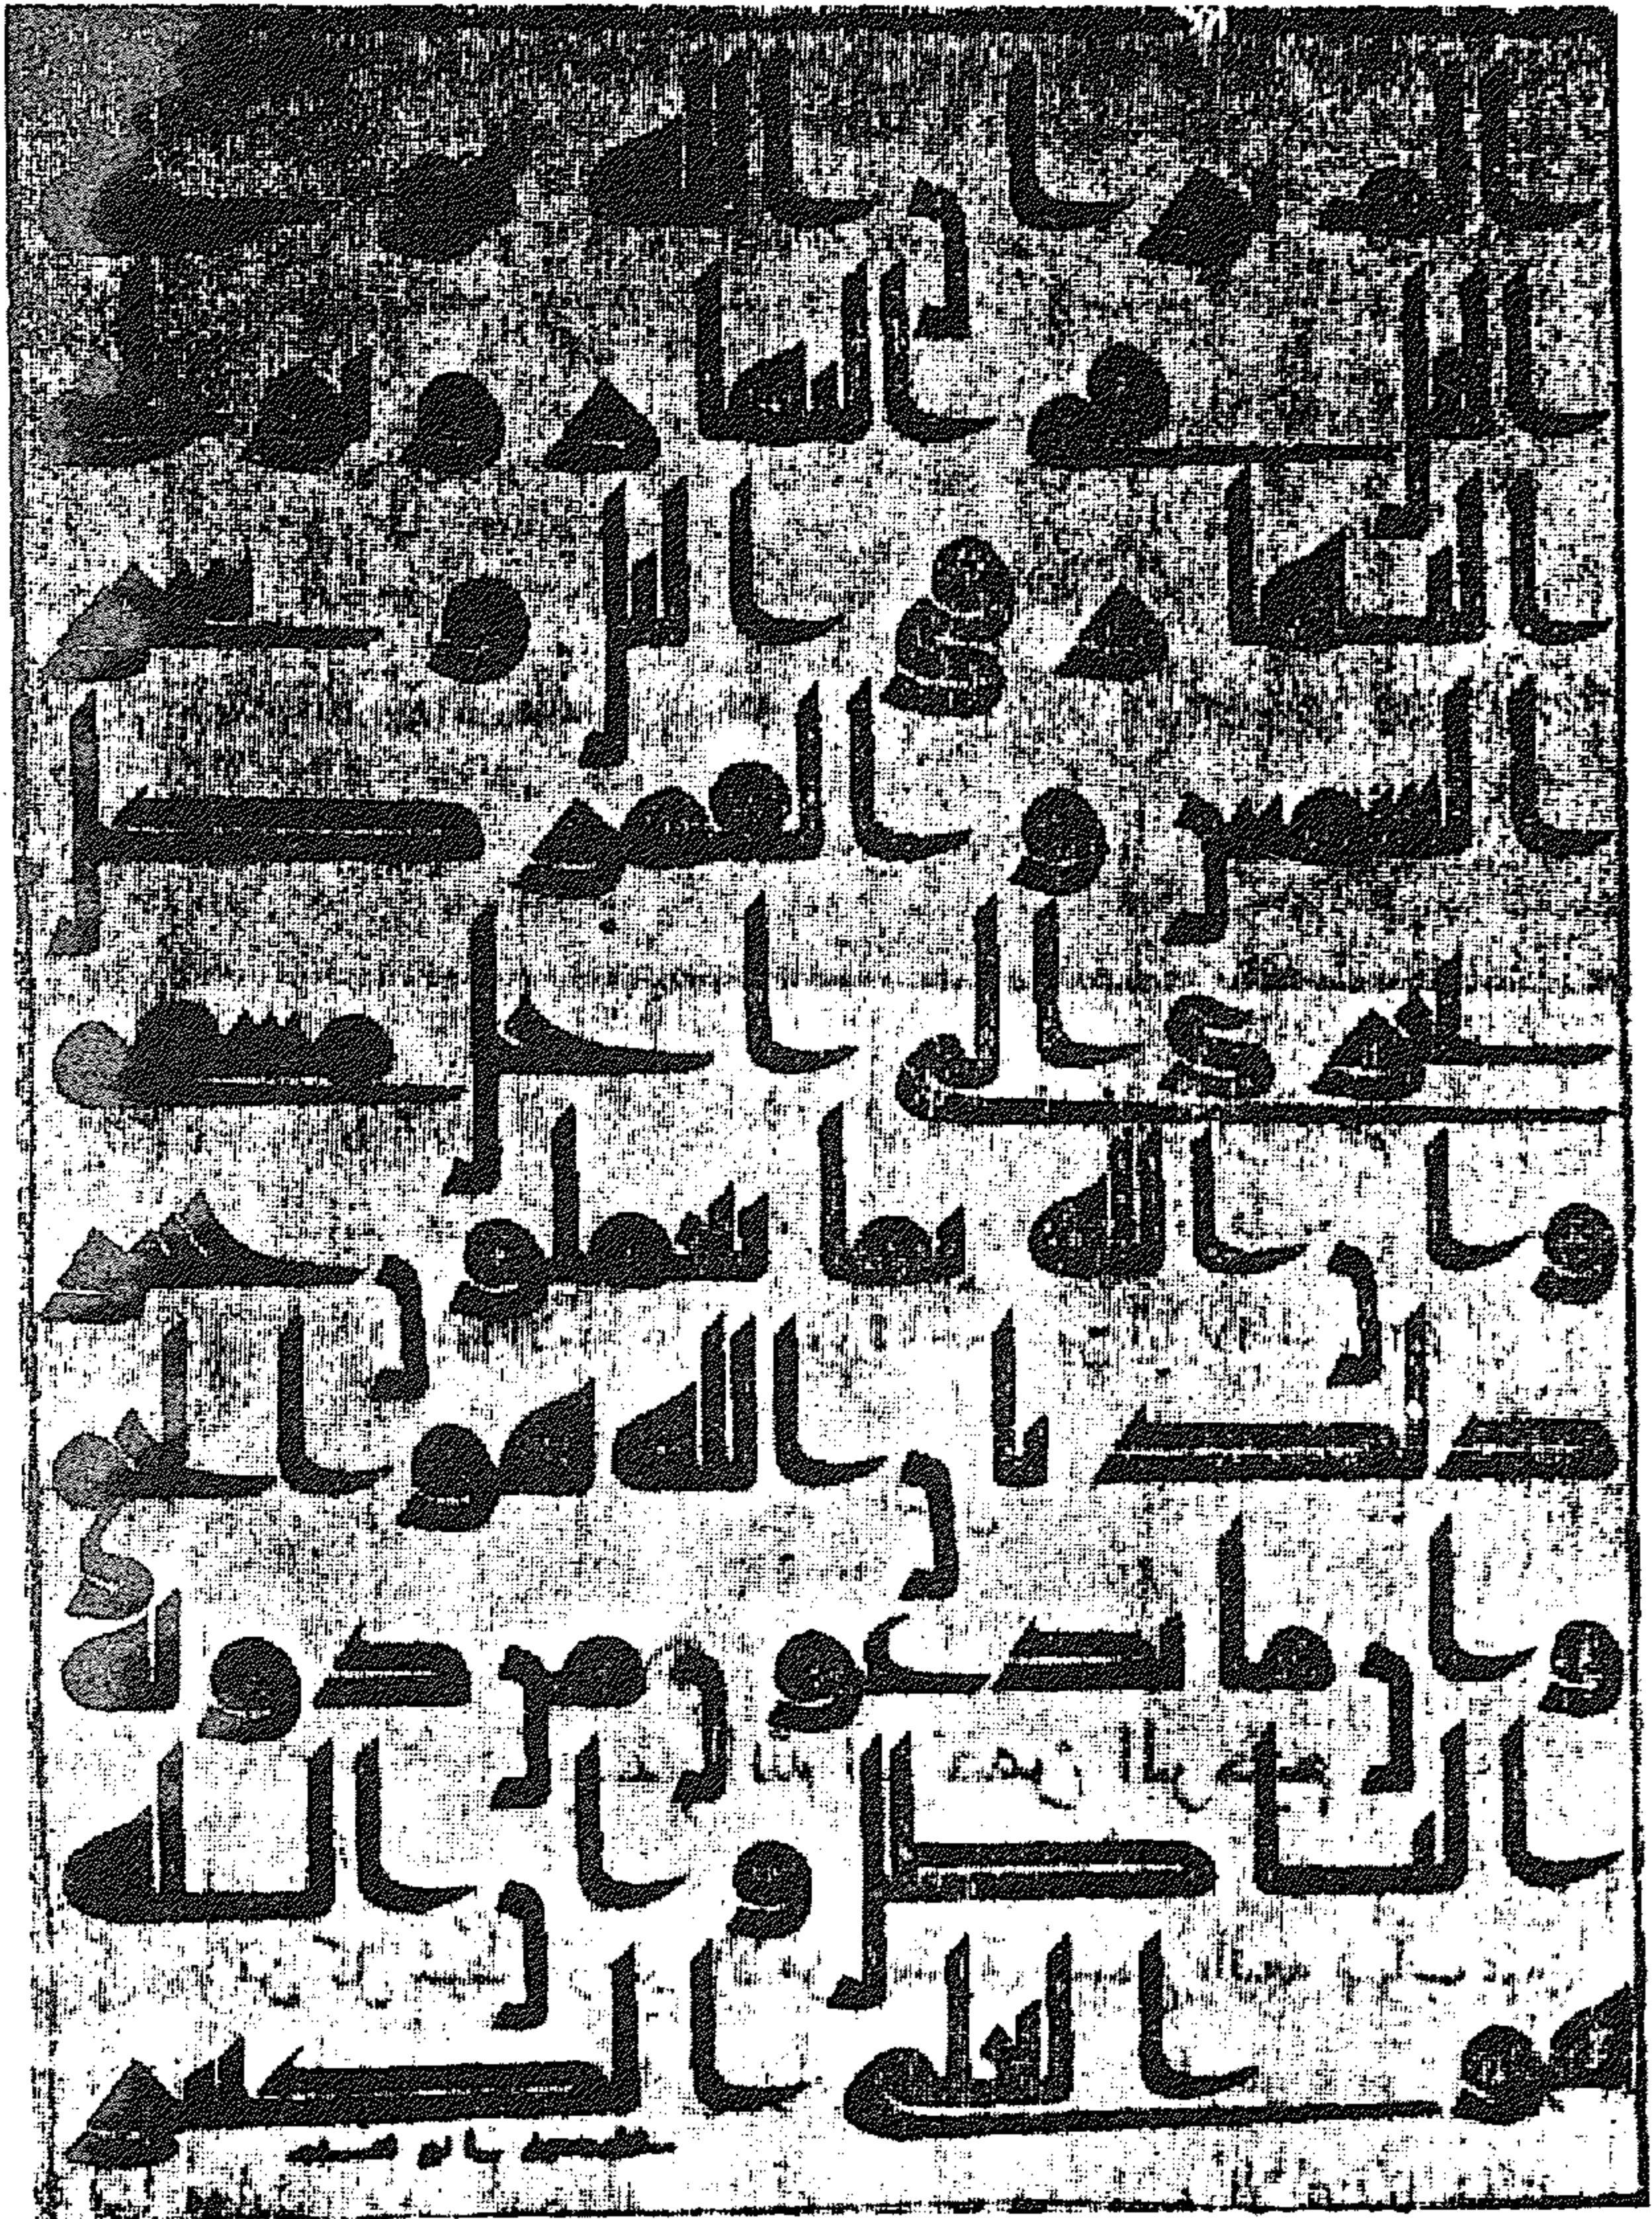 الم تر ان الله يولج
اليل في النهار ويولج
النهار في اليل وسخر
الشمس والقمر كل
يجري الى اجل مسمى
وان الله بما تعملون خبير
ذلك بان الله هو الحق
وان ما يدعون من دونه
الباطل وان الله
هو العلى الكبير